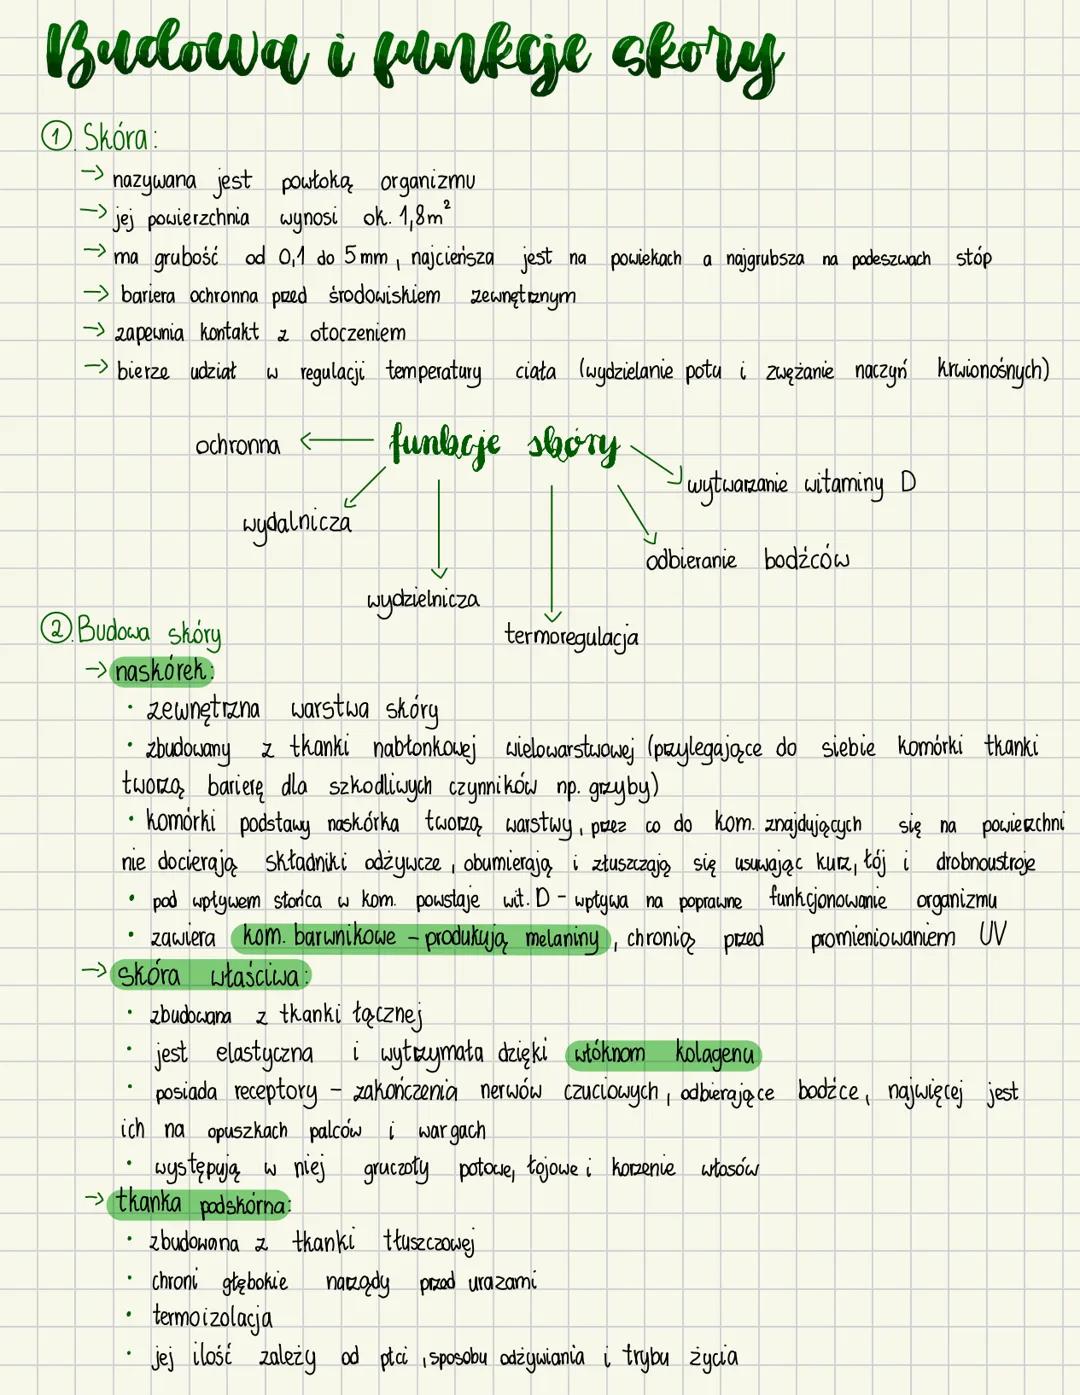 Budowa i funkcje skóry
① Skóra:
→ nazywana jest powłoką organizmu
→ jej powierzchnia wynosi ok. 1,8m²
→ ma grubość od 0,1 do 5mm, najcieńsza jest na powiekach a najgrubsza na podeszwach stóp
→ bariera ochronna przed środowiskiem zewnętrznym
→ zapewnia kontakt z otoczeniem
→ bierze udział w regulacji temperatury ciała (wydzielanie potu i zwężanie naczyń krwionośnych)
funkcje skóry
ochronna
wytwarzanie witaminy D
wydalnicza
odbieranie bodźców
wydzielnicza
termoregulacja
②. Budowa skóry
→ naskórek:
• zewnętrzna warstwa skóry
• zbudowany z tkanki nabłonkowej wielowarstwowej (przylegające do siebie komórki tkanki
tworzą barierę dla szkodliwych czynników np. grzyby)
• komórki podstawy naskórka tworzą warstwy, przez co do kom. znajdujących się na powierzchni
nie docierają składniki odżywcze, obumierają i złuszczają się usuwając kurz, łój i drobnoustroje
• pod wpływem słońca w kom. powstaje wit. D - wpływa na poprawne funkcjonowanie organizmu
• zawiera kom. barwnikowe - produkują melaniny, chronią przed promieniowaniem UV
→ skóra właściwa:
• zbudowana z tkanki łącznej
• jest elastyczna i wytrzymała dzięki włóknom kolagenu
• posiada receptory - zakończenia nerwów czuciowych, odbierające bodźce, najwięcej jest
ich na opuszkach palców i wargach
• występują w niej gruczoły potowe, łojowe i korzenie włosów
→ tkanka podskórna:
• zbudowana z tkanki tłuszczowej
• chroni głębokie narządy przed urazami
• termoizolacja
• jej ilość zależy od płci, sposobu odżywiania i trybu życia